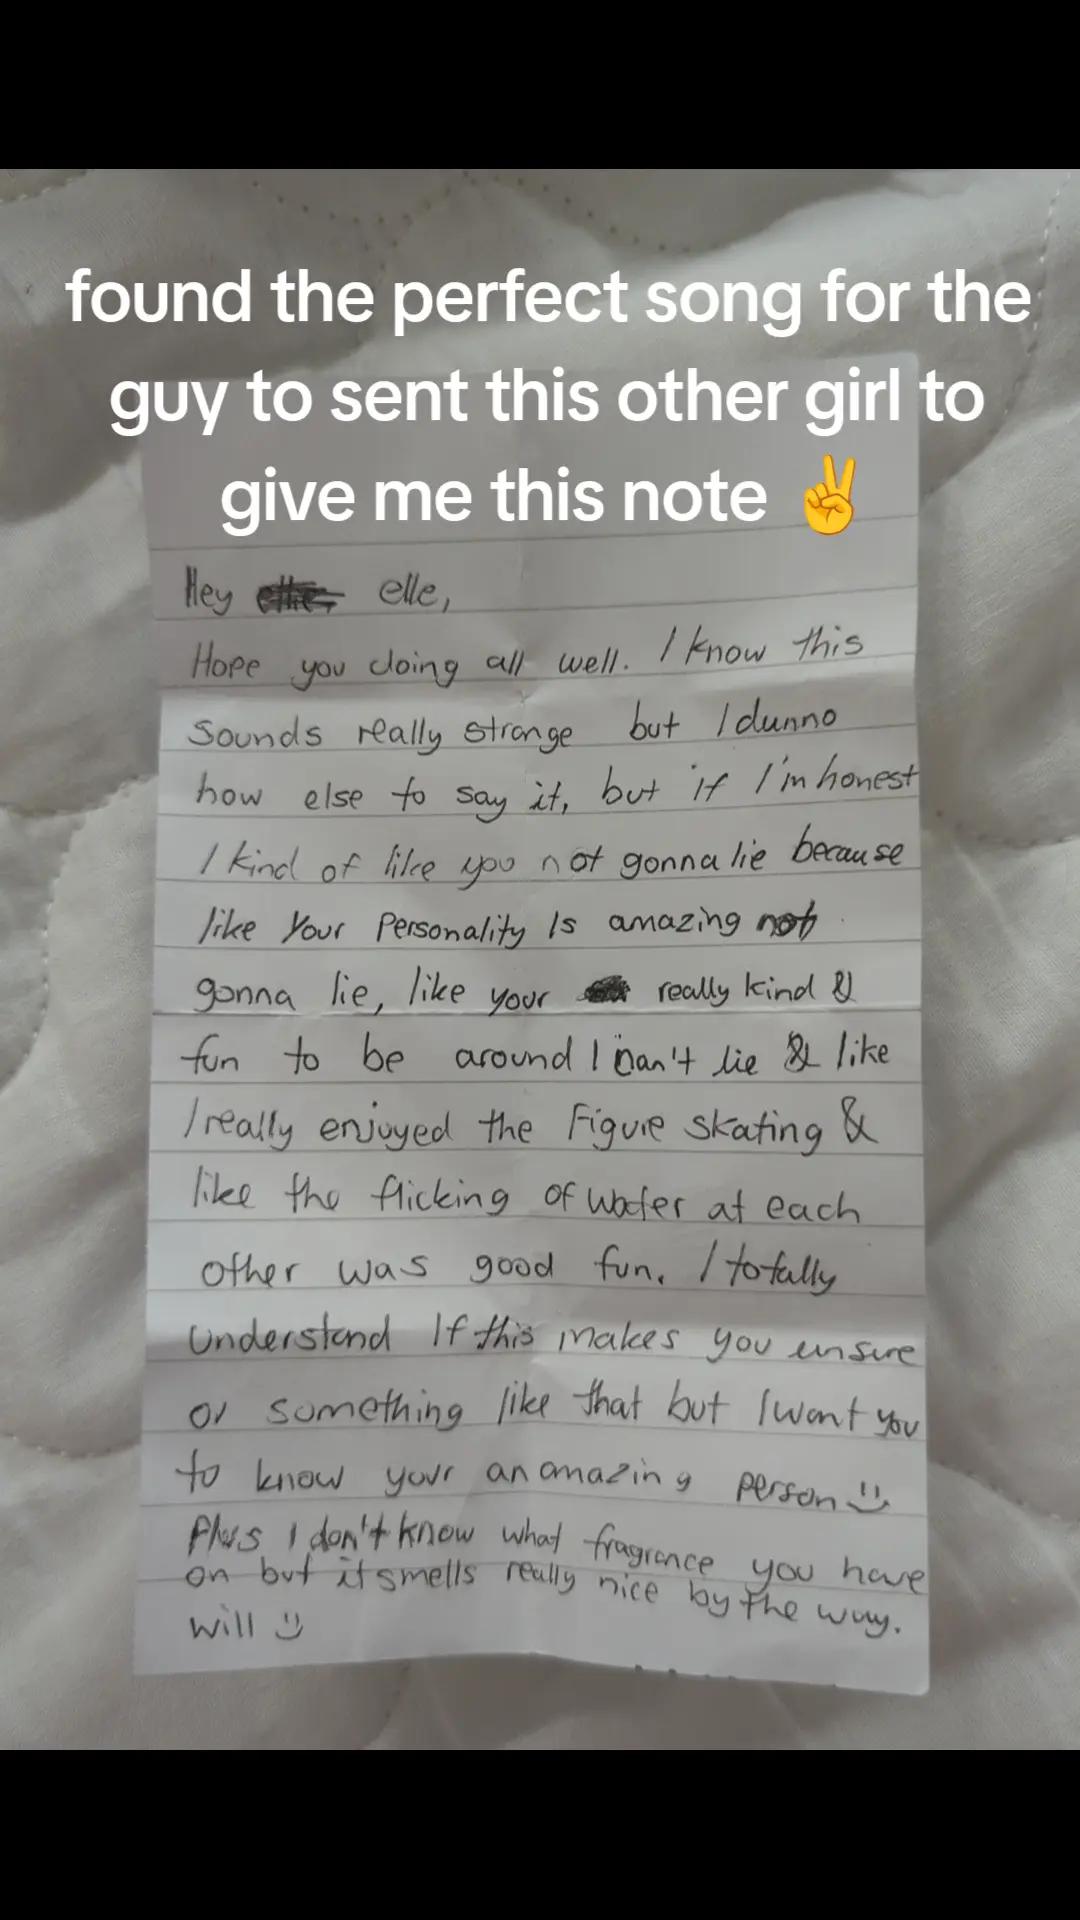 found the perfect song for the
guy to sent this other girl to
give me this note ✌️
Hey elle,
Hope you doing all well. I know this
sounds really strange but I dunno
how else to say it, but if I'm honest
I kind of like you not gonna lie because
like Your Personality Is amazing not
gonna lie, like your really kind &
fun to be around I can't lie & like
I really enjoyed the Figure skating &
like the flicking of water at each
other was good fun. I totally
Understand If this makes you unsure
or something like that but I want you
to know your an amazing person
Plus I don't know what fragrance you have
on but it smells really nice by the way.
Will